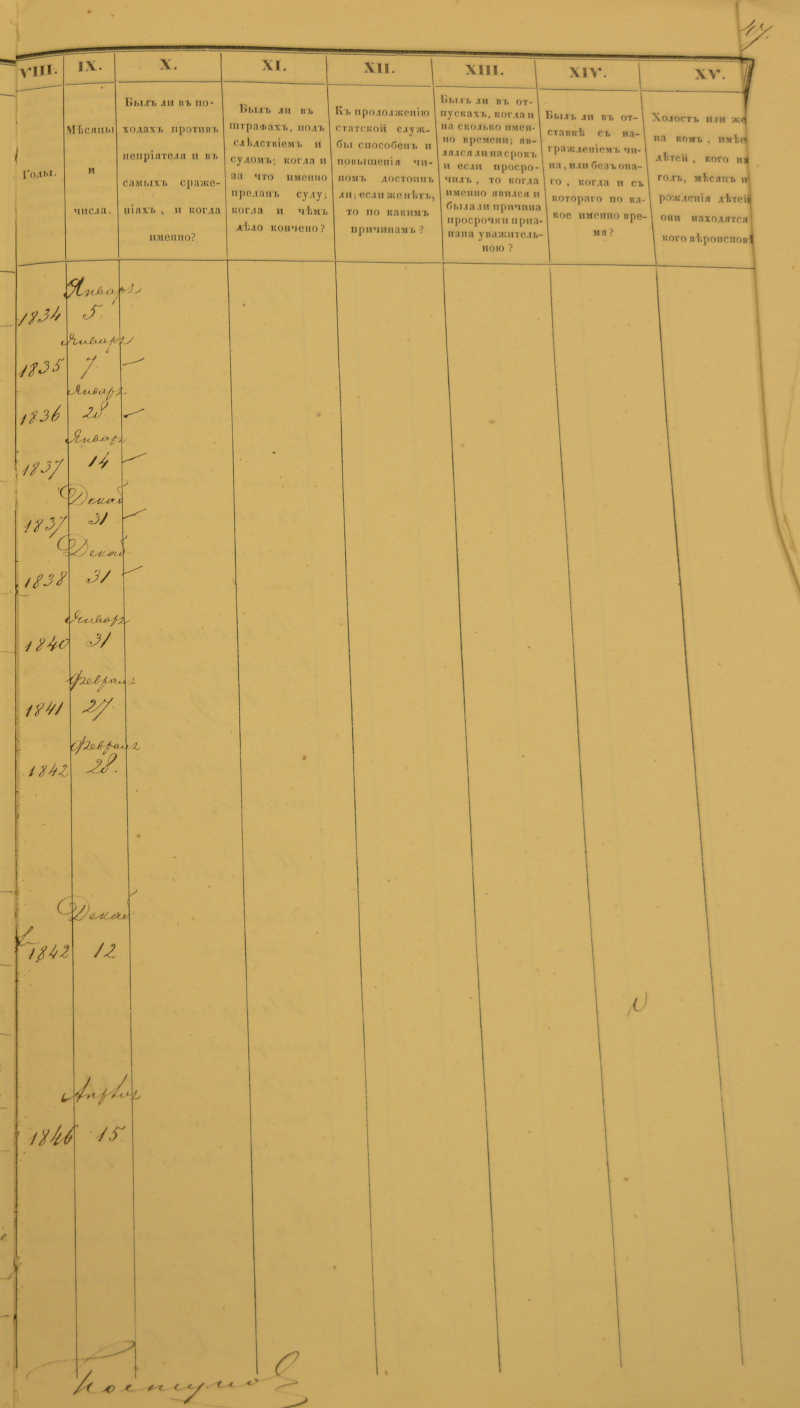 VIII. IX. X. XI. XII. XIII. XIV. XV.
Годы.
Мѣсяцы
и
числа.
Былъ ли въ по-
ходахъ противъ
непріятеля и въ
самыхъ сраже-
ніяхъ, и когда
именно?
Былъ ли въ
штрафахъ, подъ
слѣдствіемъ и
судомъ; когда и
за что именно
преданъ суду;
когда и чѣмъ
дѣло кончено?
Къ продолженію
статской служ-
бы способенъ и
повышенія чи-
номъ достоинъ
ли; если же нѣтъ,
то по какимъ
причинамъ?
Былъ ли въ от-
пускахъ, когда и
на сколько имен-
но времени; яв-
лялся ли на срокъ
и если просро-
чилъ, то когда
именно явился и
была ли причина
просрочки приз-
нана уважитель-
ною?
Былъ ли въ от-
ставкѣ съ на-
гражденіемъ чи-
на, или безъ она-
го, когда и съ
котораго по ка-
кое именно вре-
мя?
Холостъ или же
на комъ, имѣе
дѣтей, кого и
годъ, мѣсяцъ и
рожденія дѣтей
они находятся
кого вѣроиспов
Января
1834 5
Января
1835 7
Января
1836 28
Января
1837 14
Декаб
1837 31
Декаб
1838 31
Января
1840 31
Февраля
1841 27
Февраля
1842 28.
Декаб
1842 12
Апрѣля
1846 15